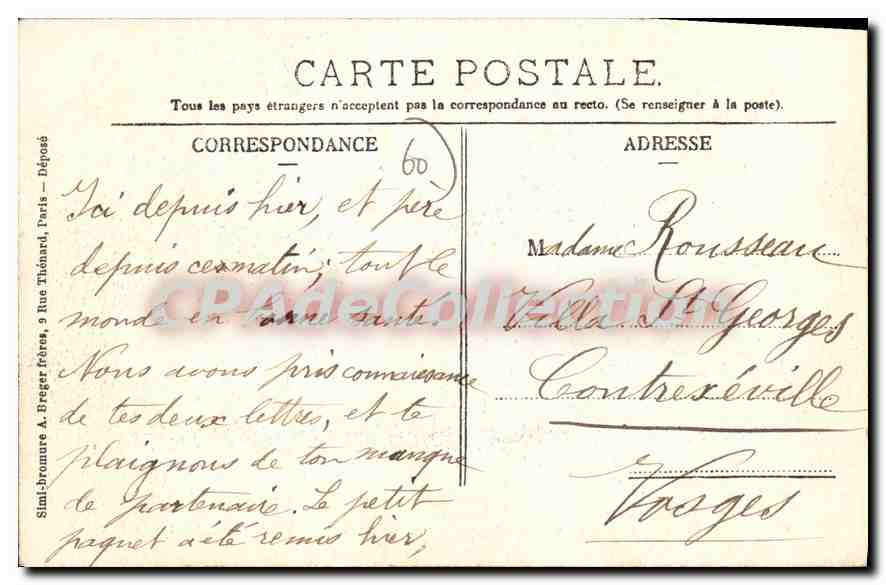 CARTE POSTALE.
Tous les pays étrangers n'acceptent pas la correspondance au recto. (Se renseigner à la poste).
CORRESPONDANCE
60
Ici depuis hier, et père
depuis ce matin; tout le
monde en bonne santé.
Nous avons pris connaissance
de tes deux lettres, et te
plaignons de ton manque
de partenaire. Le petit
paquet a été remis hier,
ADRESSE
Madame Rousseau
Villa St Georges
Contrexéville
Vosges
Simi-bromure A. Breger frères, 9 Rue Thénard, Paris — Déposé
CPAdeCollection